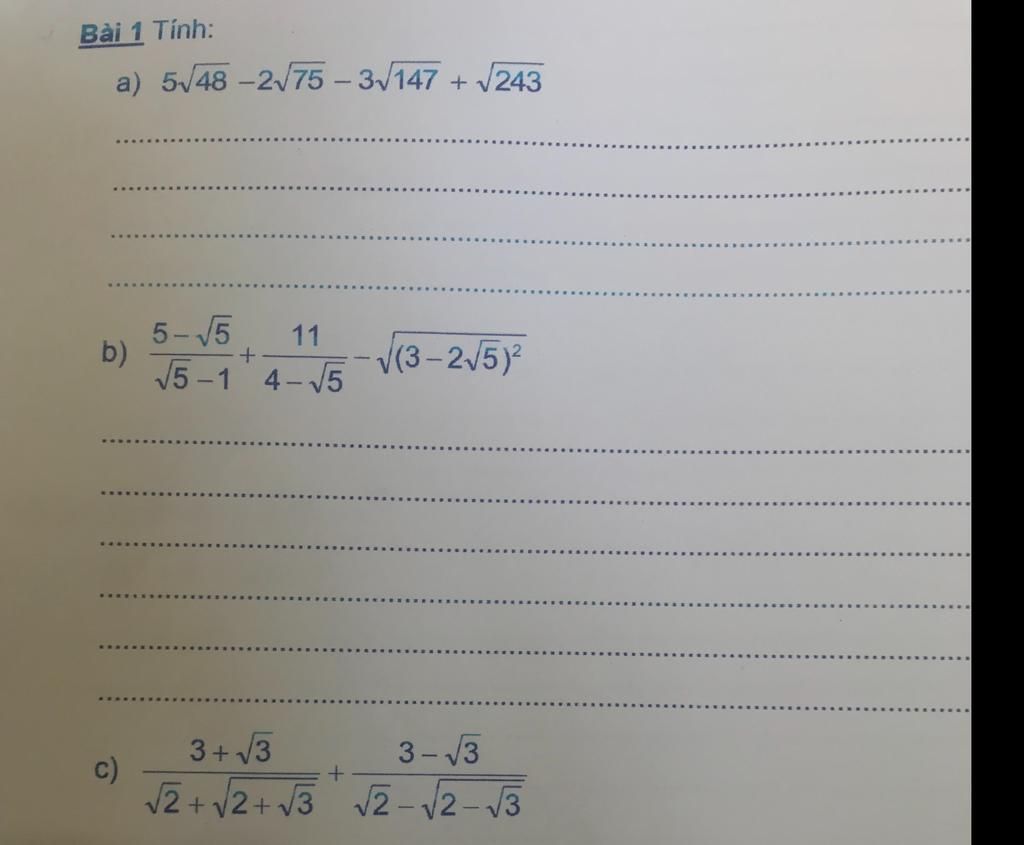 Bài 1 Tính:
a) 5√48 −2√75 − 3√147 + √243
b) (5−√5)/(√5−1) + 11/(4−√5) − √((3−2√5)²)
c) (3+√3)/(√2+√(2+√3)) + (3−√3)/(√2−√(2−√3))